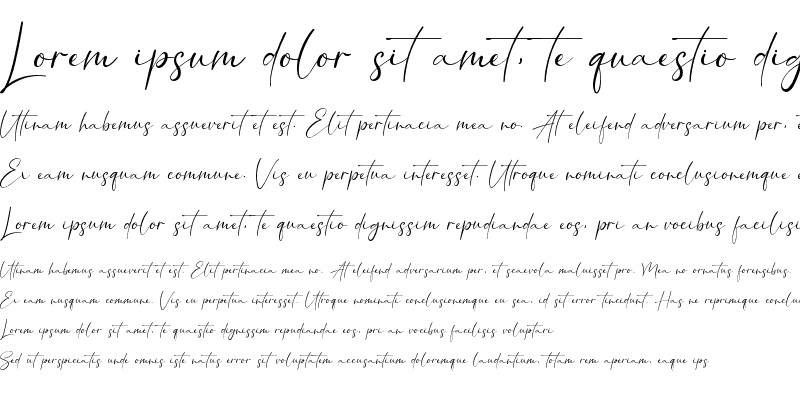 Lorem ipsum dolor sit amet, te quaestio dig
Utinam habemus assueverit et est. Elit pertinacia mea no. At eleifend adversarium per, e
Ex eam nusquam commune. Vis eu perpetua interesset. Utroque nominati conclusionemque e
Lorem ipsum dolor sit amet, te quaestio dignissim repudiandae eos, pri an vocibus facilisi
Utinam habemus assueverit et est. Elit pertinacia mea no. At eleifend adversarium per, et scaevola maluisset pro. Mea no ornatus forensibus.
Ex eam nusquam commune. Vis eu perpetua interesset. Utroque nominati conclusionemque eu sea, id sit error tincidunt. Has ne reprimique conclu
Lorem ipsum dolor sit amet, te quaestio dignissim repudiandae eos, pri an vocibus facilisis voluptari
Sed ut perspiciatis unde omnis iste natus error sit voluptatem accusantium doloremque laudantium, totam rem aperiam, eaque ips